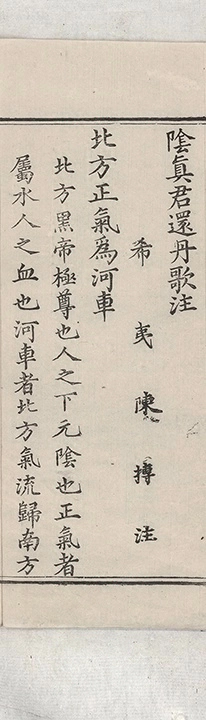 陰真君還丹歌注
希夷陳摶注
北方正氣為河車
北方黑帝極尊也人之下元陰也正氣者
屬水人之血也河車者北方氣流歸南方